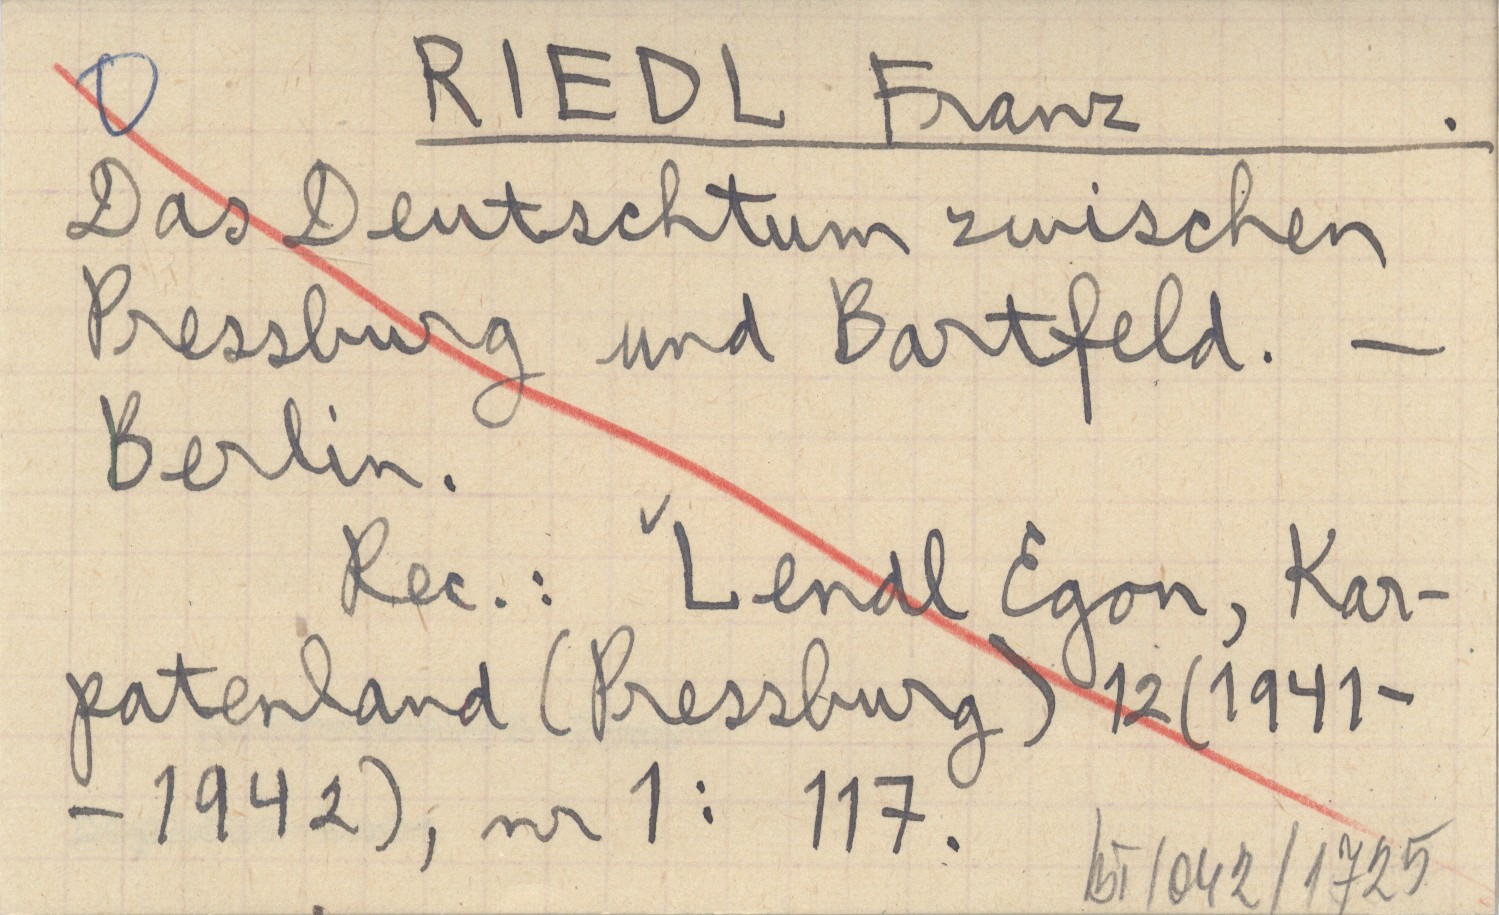 RIEDL Franz .
Das Deutschtum zwischen
Pressburg und Bartfeld. —
Berlin.
Rec.: Lendl Egon, Kar-
patenland (Pressburg) 12(1941-
-1942), nr 1: 117.
/042/1725